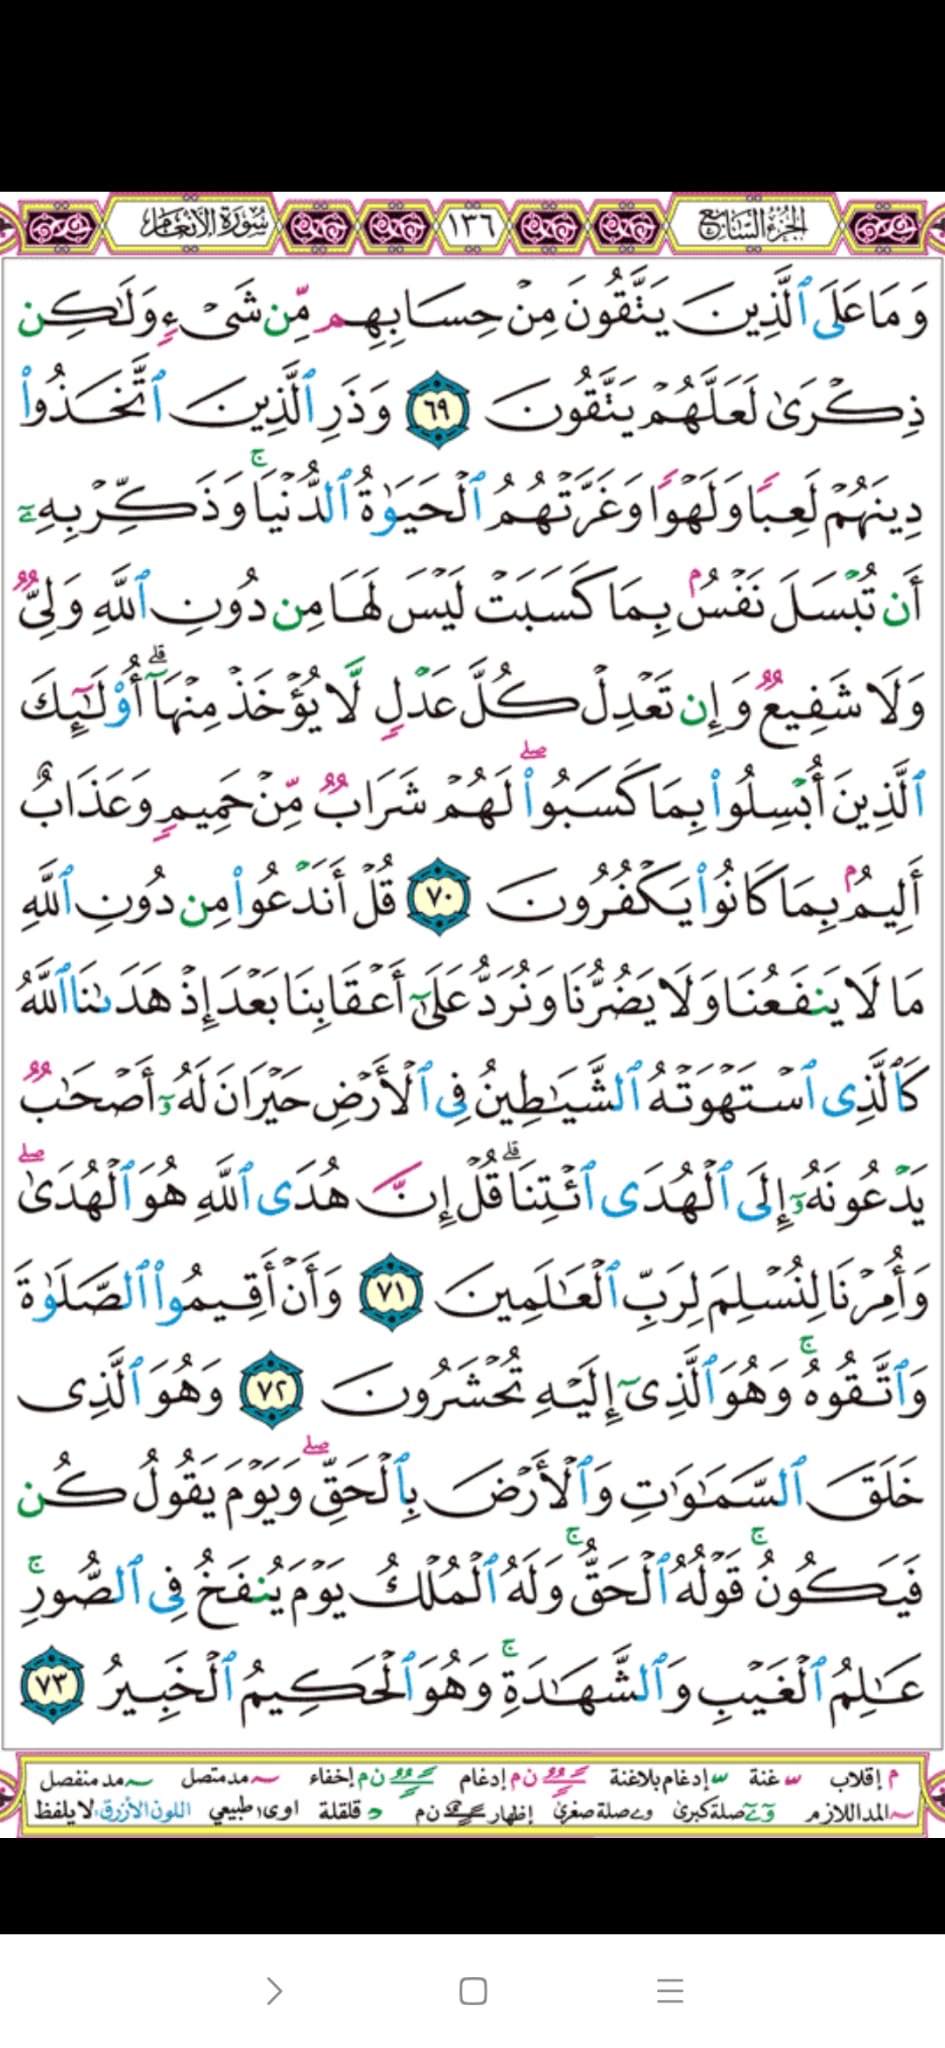 الجزء السابع ١٣٦ سورة الأنعام
وَمَا عَلَى ٱلَّذِينَ يَتَّقُونَ مِنۡ حِسَابِهِم مِّن شَيۡءٖ وَلَٰكِن
ذِكۡرَىٰ لَعَلَّهُمۡ يَتَّقُونَ ٦٩ وَذَرِ ٱلَّذِينَ ٱتَّخَذُواْ
دِينَهُمۡ لَعِبٗا وَلَهۡوٗا وَغَرَّتۡهُمُ ٱلۡحَيَوٰةُ ٱلدُّنۡيَاۚ وَذَكِّرۡ بِهِۦٓ
أَن تُبۡسَلَ نَفۡسُۢ بِمَا كَسَبَتۡ لَيۡسَ لَهَا مِن دُونِ ٱللَّهِ وَلِيّٞ
وَلَا شَفِيعٞ وَإِن تَعۡدِلۡ كُلَّ عَدۡلٖ لَّا يُؤۡخَذۡ مِنۡهَآۗ أُوْلَٰٓئِكَ
ٱلَّذِينَ أُبۡسِلُواْ بِمَا كَسَبُواْۖ لَهُمۡ شَرَابٞ مِّنۡ حَمِيمٖ وَعَذَابٌ
أَلِيمُۢ بِمَا كَانُواْ يَكۡفُرُونَ ٧٠ قُلۡ أَنَدۡعُواْ مِن دُونِ ٱللَّهِ
مَا لَا يَنفَعُنَا وَلَا يَضُرُّنَا وَنُرَدُّ عَلَىٰٓ أَعۡقَابِنَا بَعۡدَ إِذۡ هَدَىٰنَا ٱللَّهُ
كَٱلَّذِي ٱسۡتَهۡوَتۡهُ ٱلشَّيَٰطِينُ فِي ٱلۡأَرۡضِ حَيۡرَانَ لَهُۥٓ أَصۡحَٰبٞ
يَدۡعُونَهُۥٓ إِلَى ٱلۡهُدَى ٱئۡتِنَاۗ قُلۡ إِنَّ هُدَى ٱللَّهِ هُوَ ٱلۡهُدَىٰۖ
وَأُمِرۡنَا لِنُسۡلِمَ لِرَبِّ ٱلۡعَٰلَمِينَ ٧١ وَأَنۡ أَقِيمُواْ ٱلصَّلَوٰةَ
وَٱتَّقُوهُۚ وَهُوَ ٱلَّذِيٓ إِلَيۡهِ تُحۡشَرُونَ ٧٢ وَهُوَ ٱلَّذِي
خَلَقَ ٱلسَّمَٰوَٰتِ وَٱلۡأَرۡضَ بِٱلۡحَقِّۖ وَيَوۡمَ يَقُولُ كُن
فَيَكُونُۚ قَوۡلُهُ ٱلۡحَقُّۚ وَلَهُ ٱلۡمُلۡكُ يَوۡمَ يُنفَخُ فِي ٱلصُّورِۚ
عَٰلِمُ ٱلۡغَيۡبِ وَٱلشَّهَٰدَةِۚ وَهُوَ ٱلۡحَكِيمُ ٱلۡخَبِيرُ ٧٣
م إقلاب غنة إدغام بلاغنة ن م إدغام ن م إخفاء مد متصل مد منفصل
المد اللازم صلة كبرى صلة صغرى إظهار ن م قلقلة اوى طبيعي اللون الأزرق: لا يلفظ